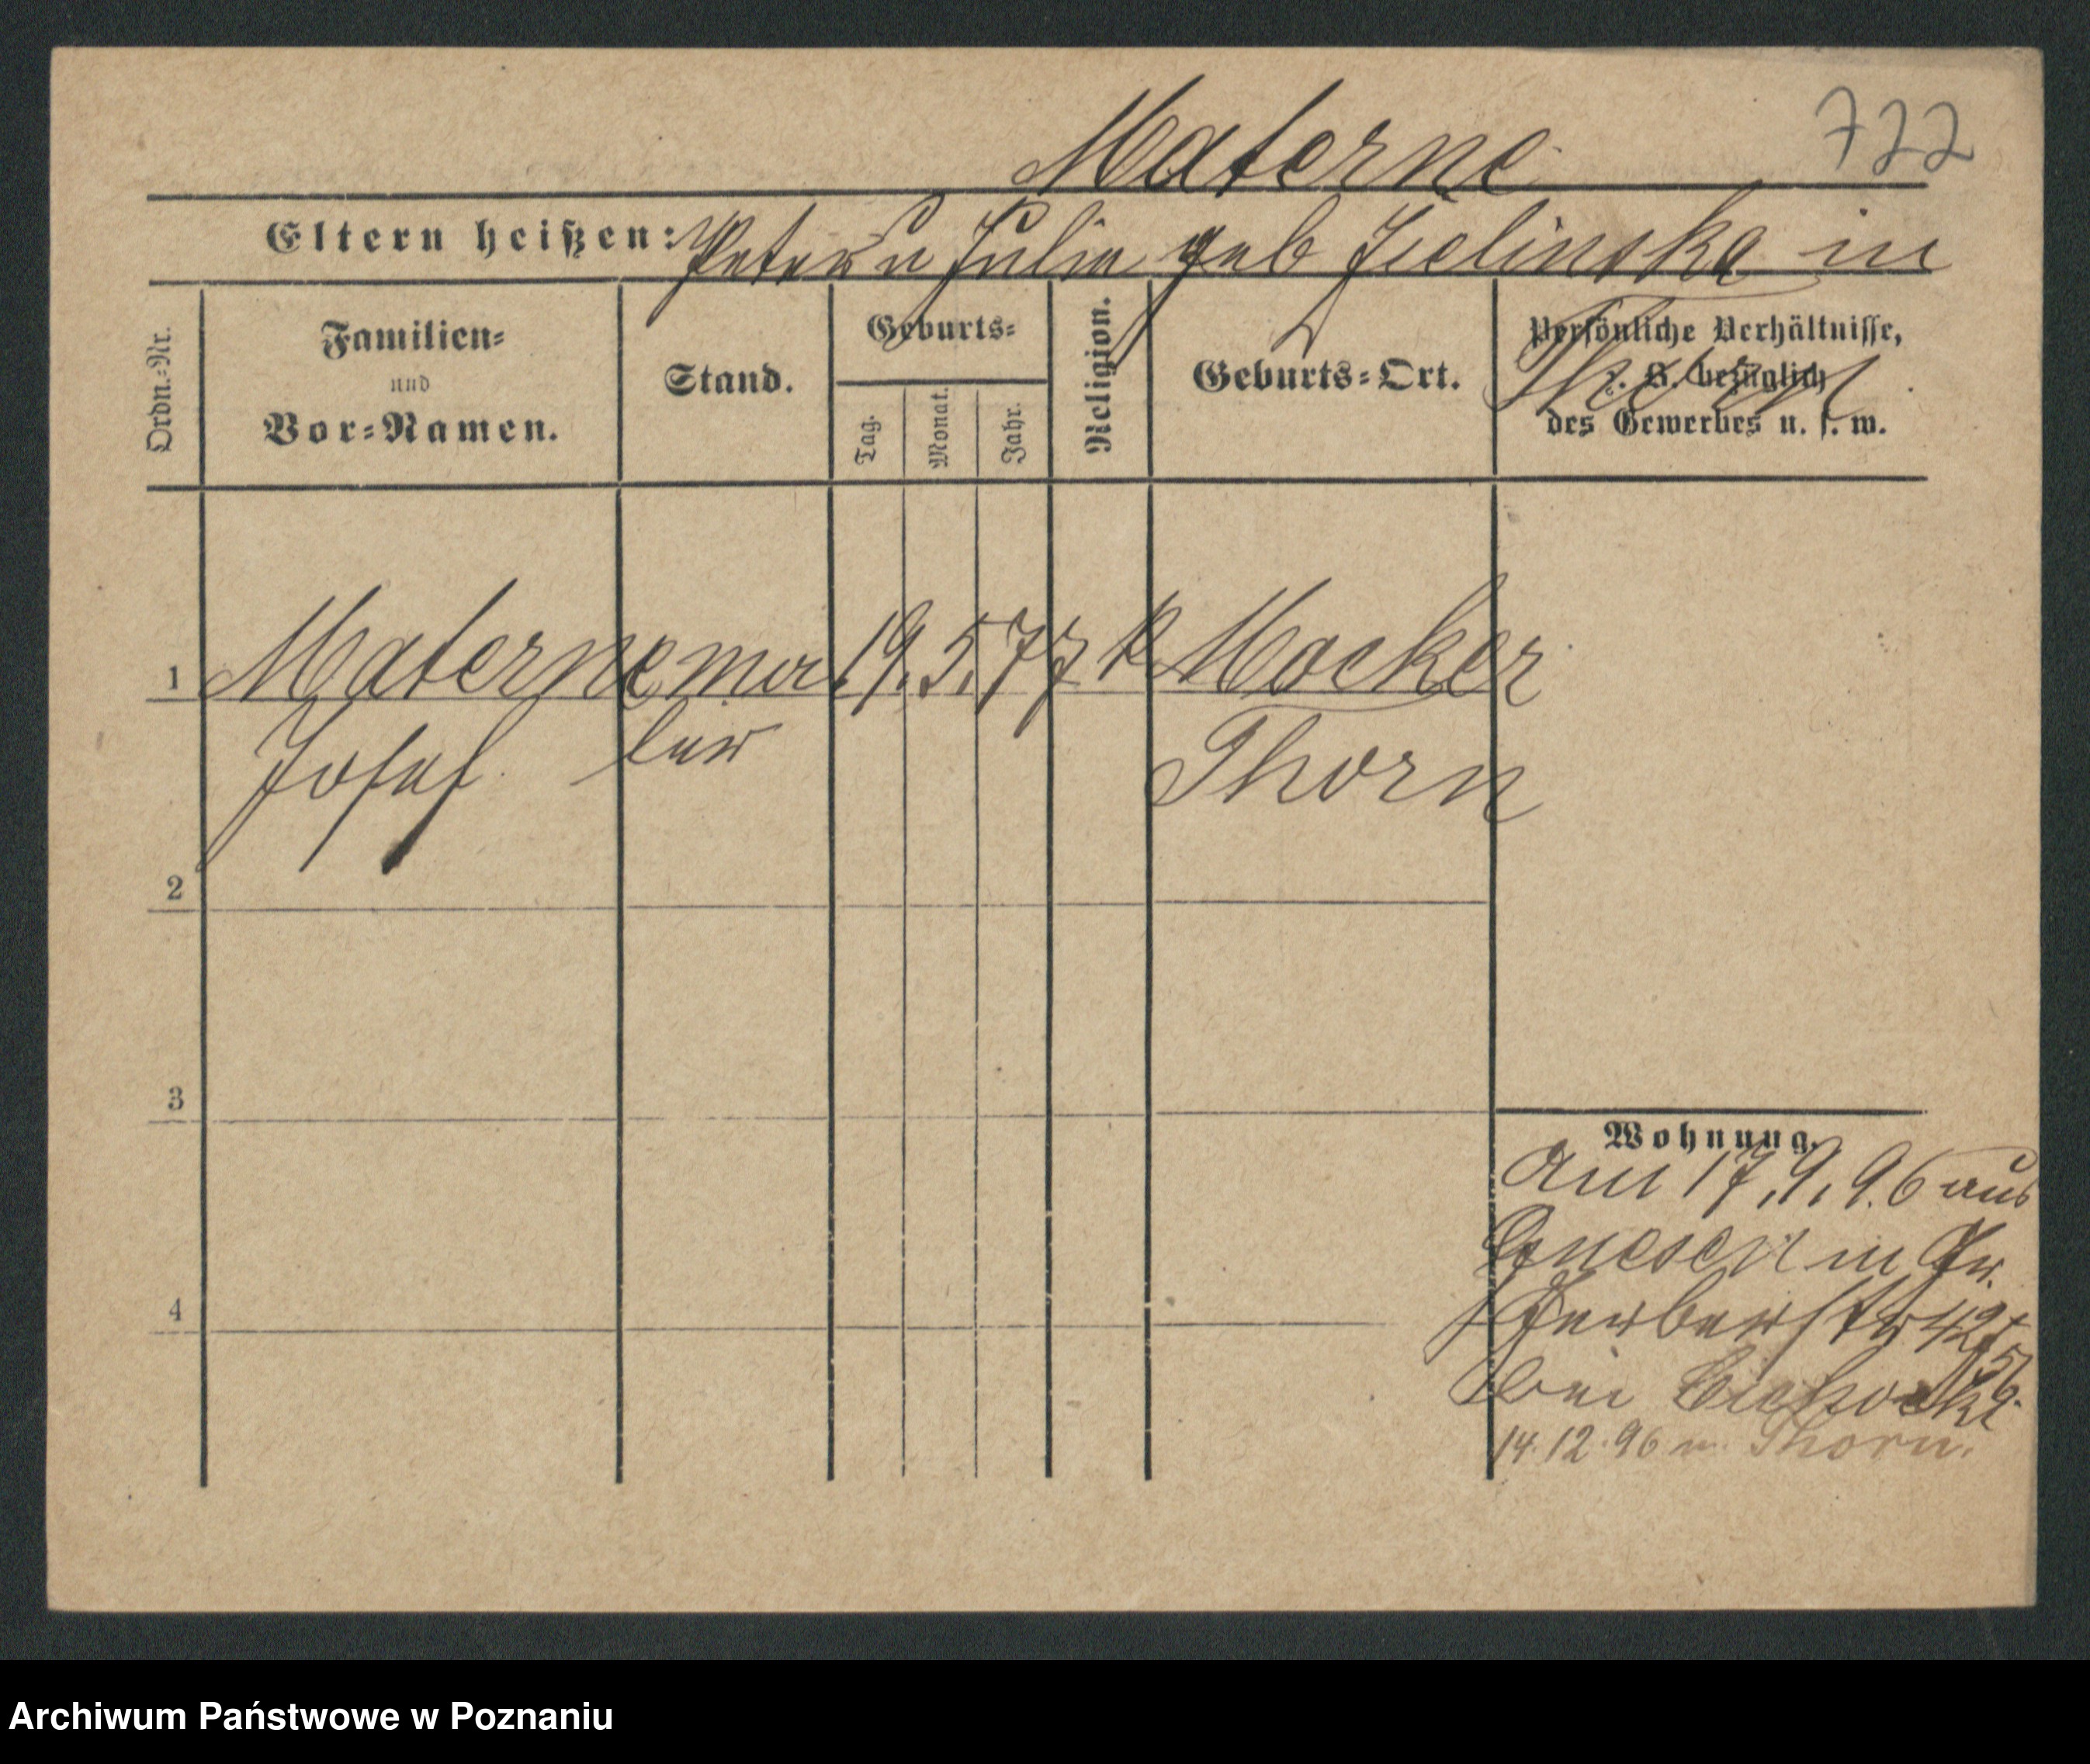 Materne 722
Eltern heißen: Peter u Julie geb Zielinska in
Thorn
Ordn.-Nr.
Familien-
und
Vor-Namen.
Stand.
Geburts-
Tag.
Monat.
Jahr.
Religion.
Geburts-Ort.
Persönliche Verhältnisse,
z. B. bezüglich
des Gewerbes u. s. w.
1 Materne ma 19. 5. 77 k Mocker
Josef ler Thorn
2
3
4
Wohnung.
am 17. 9. 96 aus
Gnesen in Gr.
Gerberstr 42
bei Cichocki
14. 12. 96 n. Thorn.
Archiwum Państwowe w Poznaniu